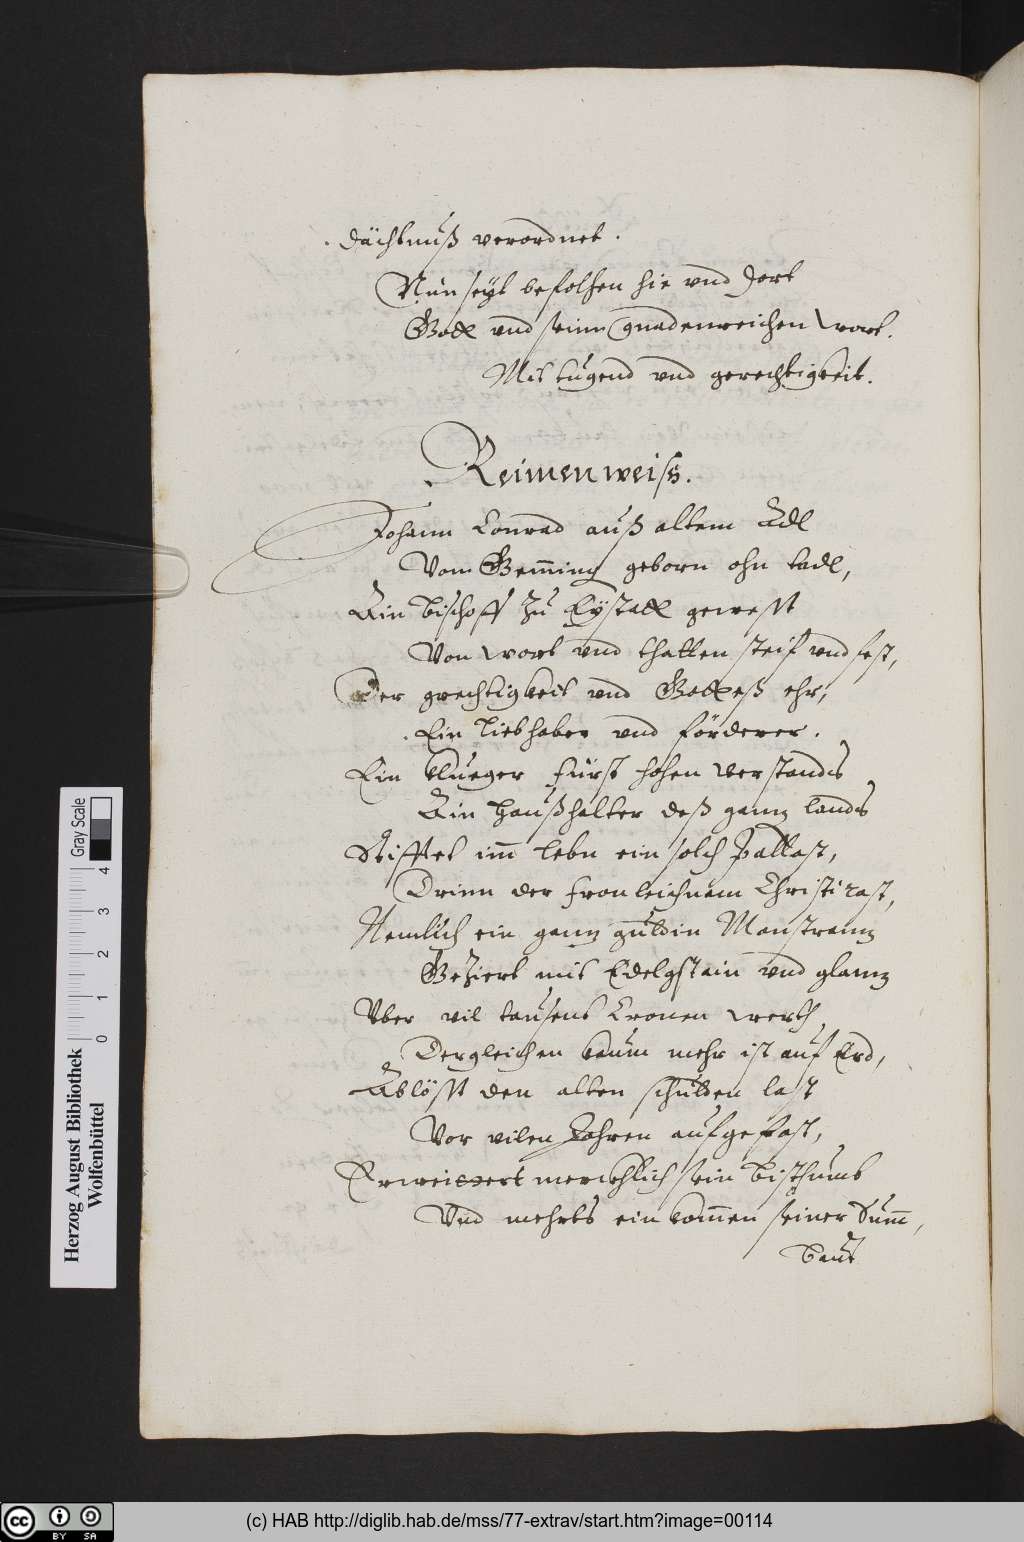 dächtnuß verordnet.
Nun seyt befolhen hie und dort
Gott und seim gnadenreichen wort.
Mit tugend und gerechtigkeit.
Reimenweiß.
Johann Conrad auß altem Adl
Vom Gem̄ing geborn ohn tadl,
Ain Bischoff zu Eystatt gewesst
Von wort und thatten steif und fest,
Der grechtigkeit und Gotteß ehr,
Ein liebhaber und förderer.
Ein kluger fürst hohen verstands
Ain Haußhalter deß ganz lands
Stifftet im̄ lebn ein solch Pallast,
Drinn der fronleichnam Christi rast,
Nemlich ein ganz guldin Monstranz
Geziert mit Edelgstain und glanz
Uber vil tausent Cronen werth
Dergleichen kaum mehr ist auf Erd,
Ablösst den alten schulden last
Vor vilen Jahren aufgefast,
Erweittert mercklich sein Bisthumb
Und mehrts einkom̄en seiner Sum̄,
Baut
Gray Scale
0 1 2 3 4
Herzog August Bibliothek
Wolfenbüttel
cc BY SA
(c) HAB http://diglib.hab.de/mss/77-extrav/start.htm?image=00114